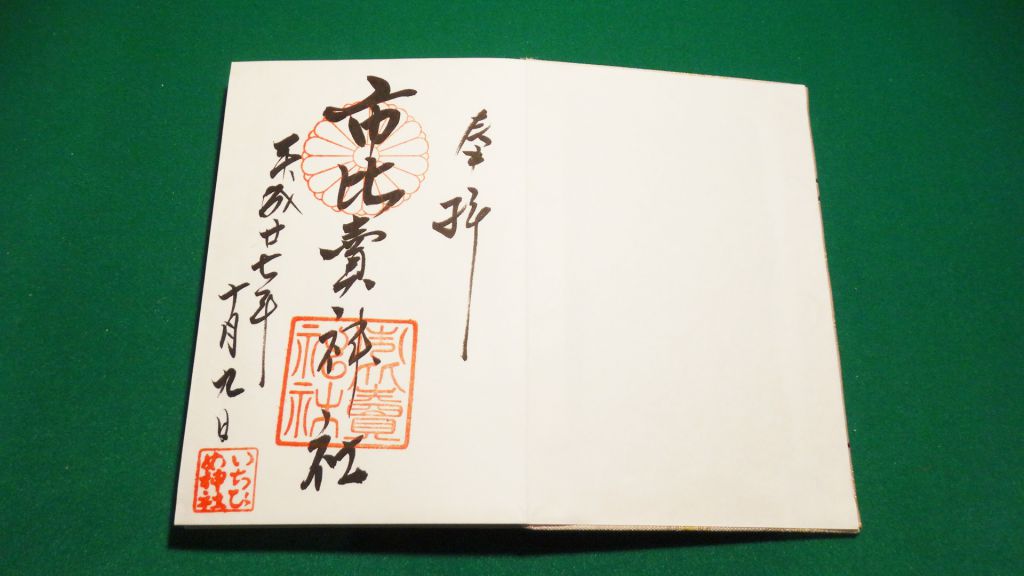 奉拝
市比賣神社
平成廿七年
十月九日
市比賣
神社
いちひ
め神社